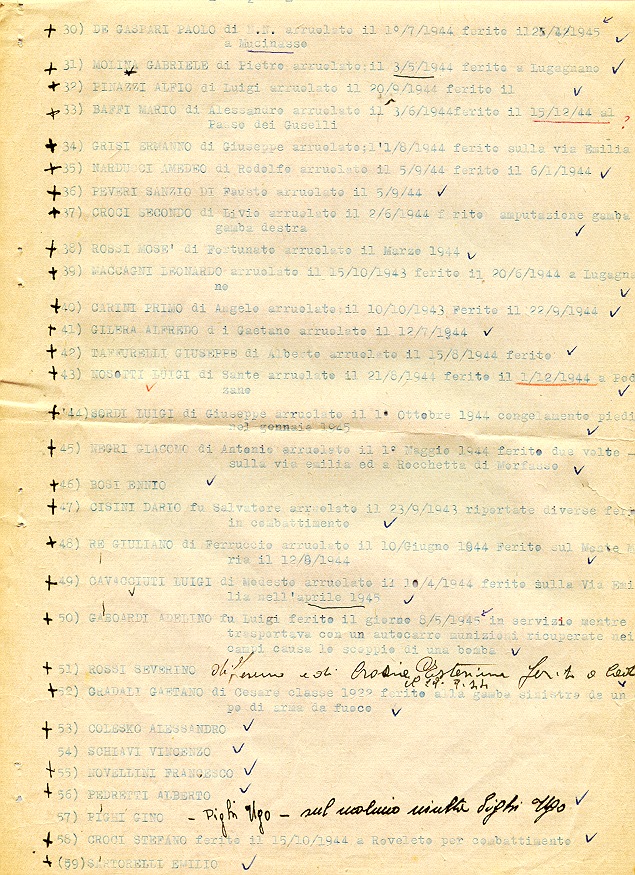 30) DE GASPARI PAOLO di N.N. arruolato il 1º/7/1944 ferito il 1945
a Mucinasso
31) MOLINA GABRIELE di Pietro arruolato il 3/5/1944 ferito a Lugagnano
32) PINAZZI ALFIO di Luigi arruolato il 20/9/1944 ferito il
33) BAFFI MARIO di Alessandro arruolato il 3/6/1944 ferito il 15/12/44 al
Passo dei Guselli ?
34) GRISI ERMANNO di Giuseppe arruolato il 1/8/1944 ferito sulla via Emilia
35) NARDUCCI AMEDEO di Rodolfo arruolato il 5/9/44 ferito il 6/1/1944
36) PEVERI SANZIO DI Fausto arruolato il 5/9/44
37) CROCI SECONDO di Livio arruolato il 2/6/1944 f rito amputazione gamba
gamba destra
38) ROSSI MOSE' di Fortunato arruolato il Marzo 1944
39) MACCAGNI LEONARDO arruolato il 15/10/1943 ferito il 20/6/1944 a Lugagna
no
40) CARINI PRIMO di Angelo arruolato il 10/10/1943 Ferito il 22/9/1944
41) GILERA ALFREDO d i Gaetano arruolato il 12/7/1944
42) TAFFURELLI GIUSEPPE di Alberto arruolato il 15/8/1944 ferito
43) NOSOTTI LUIGI di Sante arruolato il 21/8/1944 ferito il 1/12/1944 a Pod
zano
44) SORDI LUIGI di Giuseppe arruolato il 1º Ottobre 1944 congelamento piedi
nel gennaio 1945
45) NEGRI GIACOMO di Antonio arruolato il 1º Maggio 1944 ferito due volte -
sulla via emilia ed a Rocchetta di Morfasso
46) BOSI ENNIO
47) CISINI DARIO fu Salvatore arruolato il 23/9/1943 riportate diverse feri
in combattimento
48) RE GIULIANO di Ferruccio arruolato il 10/Giugno 1944 Ferito sul Monte
ria il 12/8/1944
49) CAVACCIUTI LUIGI di Modesto arruolato il 10/4/1944 ferito sulla Via Emi
lia nell'aprile 1945
50) GABOARDI ADELINO fu Luigi ferito il giorno 8/5/1945 in servizio mentre
trasportava con un autocarro munizioni ricuperate nei
campi causa lo scoppio di una bomba
51) ROSSI SEVERINO di e di ferito a
il
52) GRADALI GAETANO di Cesare classe 1922 ferito alla gamba sinistra da un
po di arma da fuoco
53) COLESKO ALESSANDRO
54) SCHIAVI VINCENZO
55) NOVELLINI FRANCESCO
56) PEDRETTI ALBERTO
57) PIGHI GINO - Pighi Ugo - sul Pighi Ugo
58) CROCI STEFANO ferito il 15/10/1944 a Roveleto per combattimento
(59) SARTORELLI EMILIO